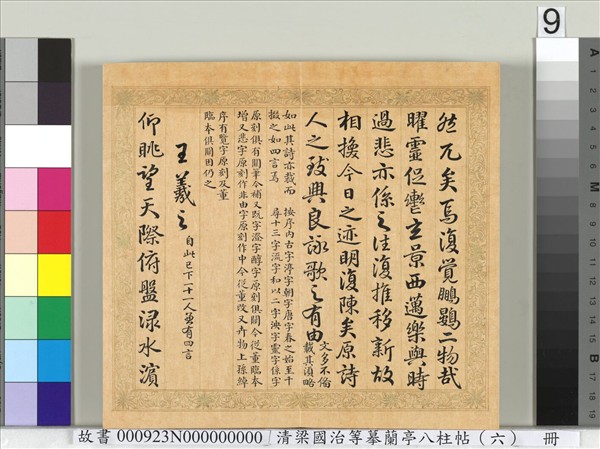 然兀矣焉復覺鵬鷃二物哉
曜靈促轡玄景西邁樂與時
過悲亦係之往復推移新故
相換今日之迹明復陳矣原詩
人之致興良詠歌之有由
文多不備
載其須略
如此其詩亦載而
掇之如四言焉
按序內古字渟字朝字唐字春之始至十
尋十三字流字和以二字澳字靈字係字
原刻俱有闕筆今補又既字澄字醇字原刻俱闕今從董臨本
增又悲字原刻作非由字原刻作中今從董改又卉物上孫綽
序有覽字原刻及董
臨本俱闕因仍之
王羲之
自此已下一十一人並有四言
仰眺望天際俯盤淥水濱
9
故書 000923N000000000 清梁國治等摹蘭亭八柱帖(六) 冊